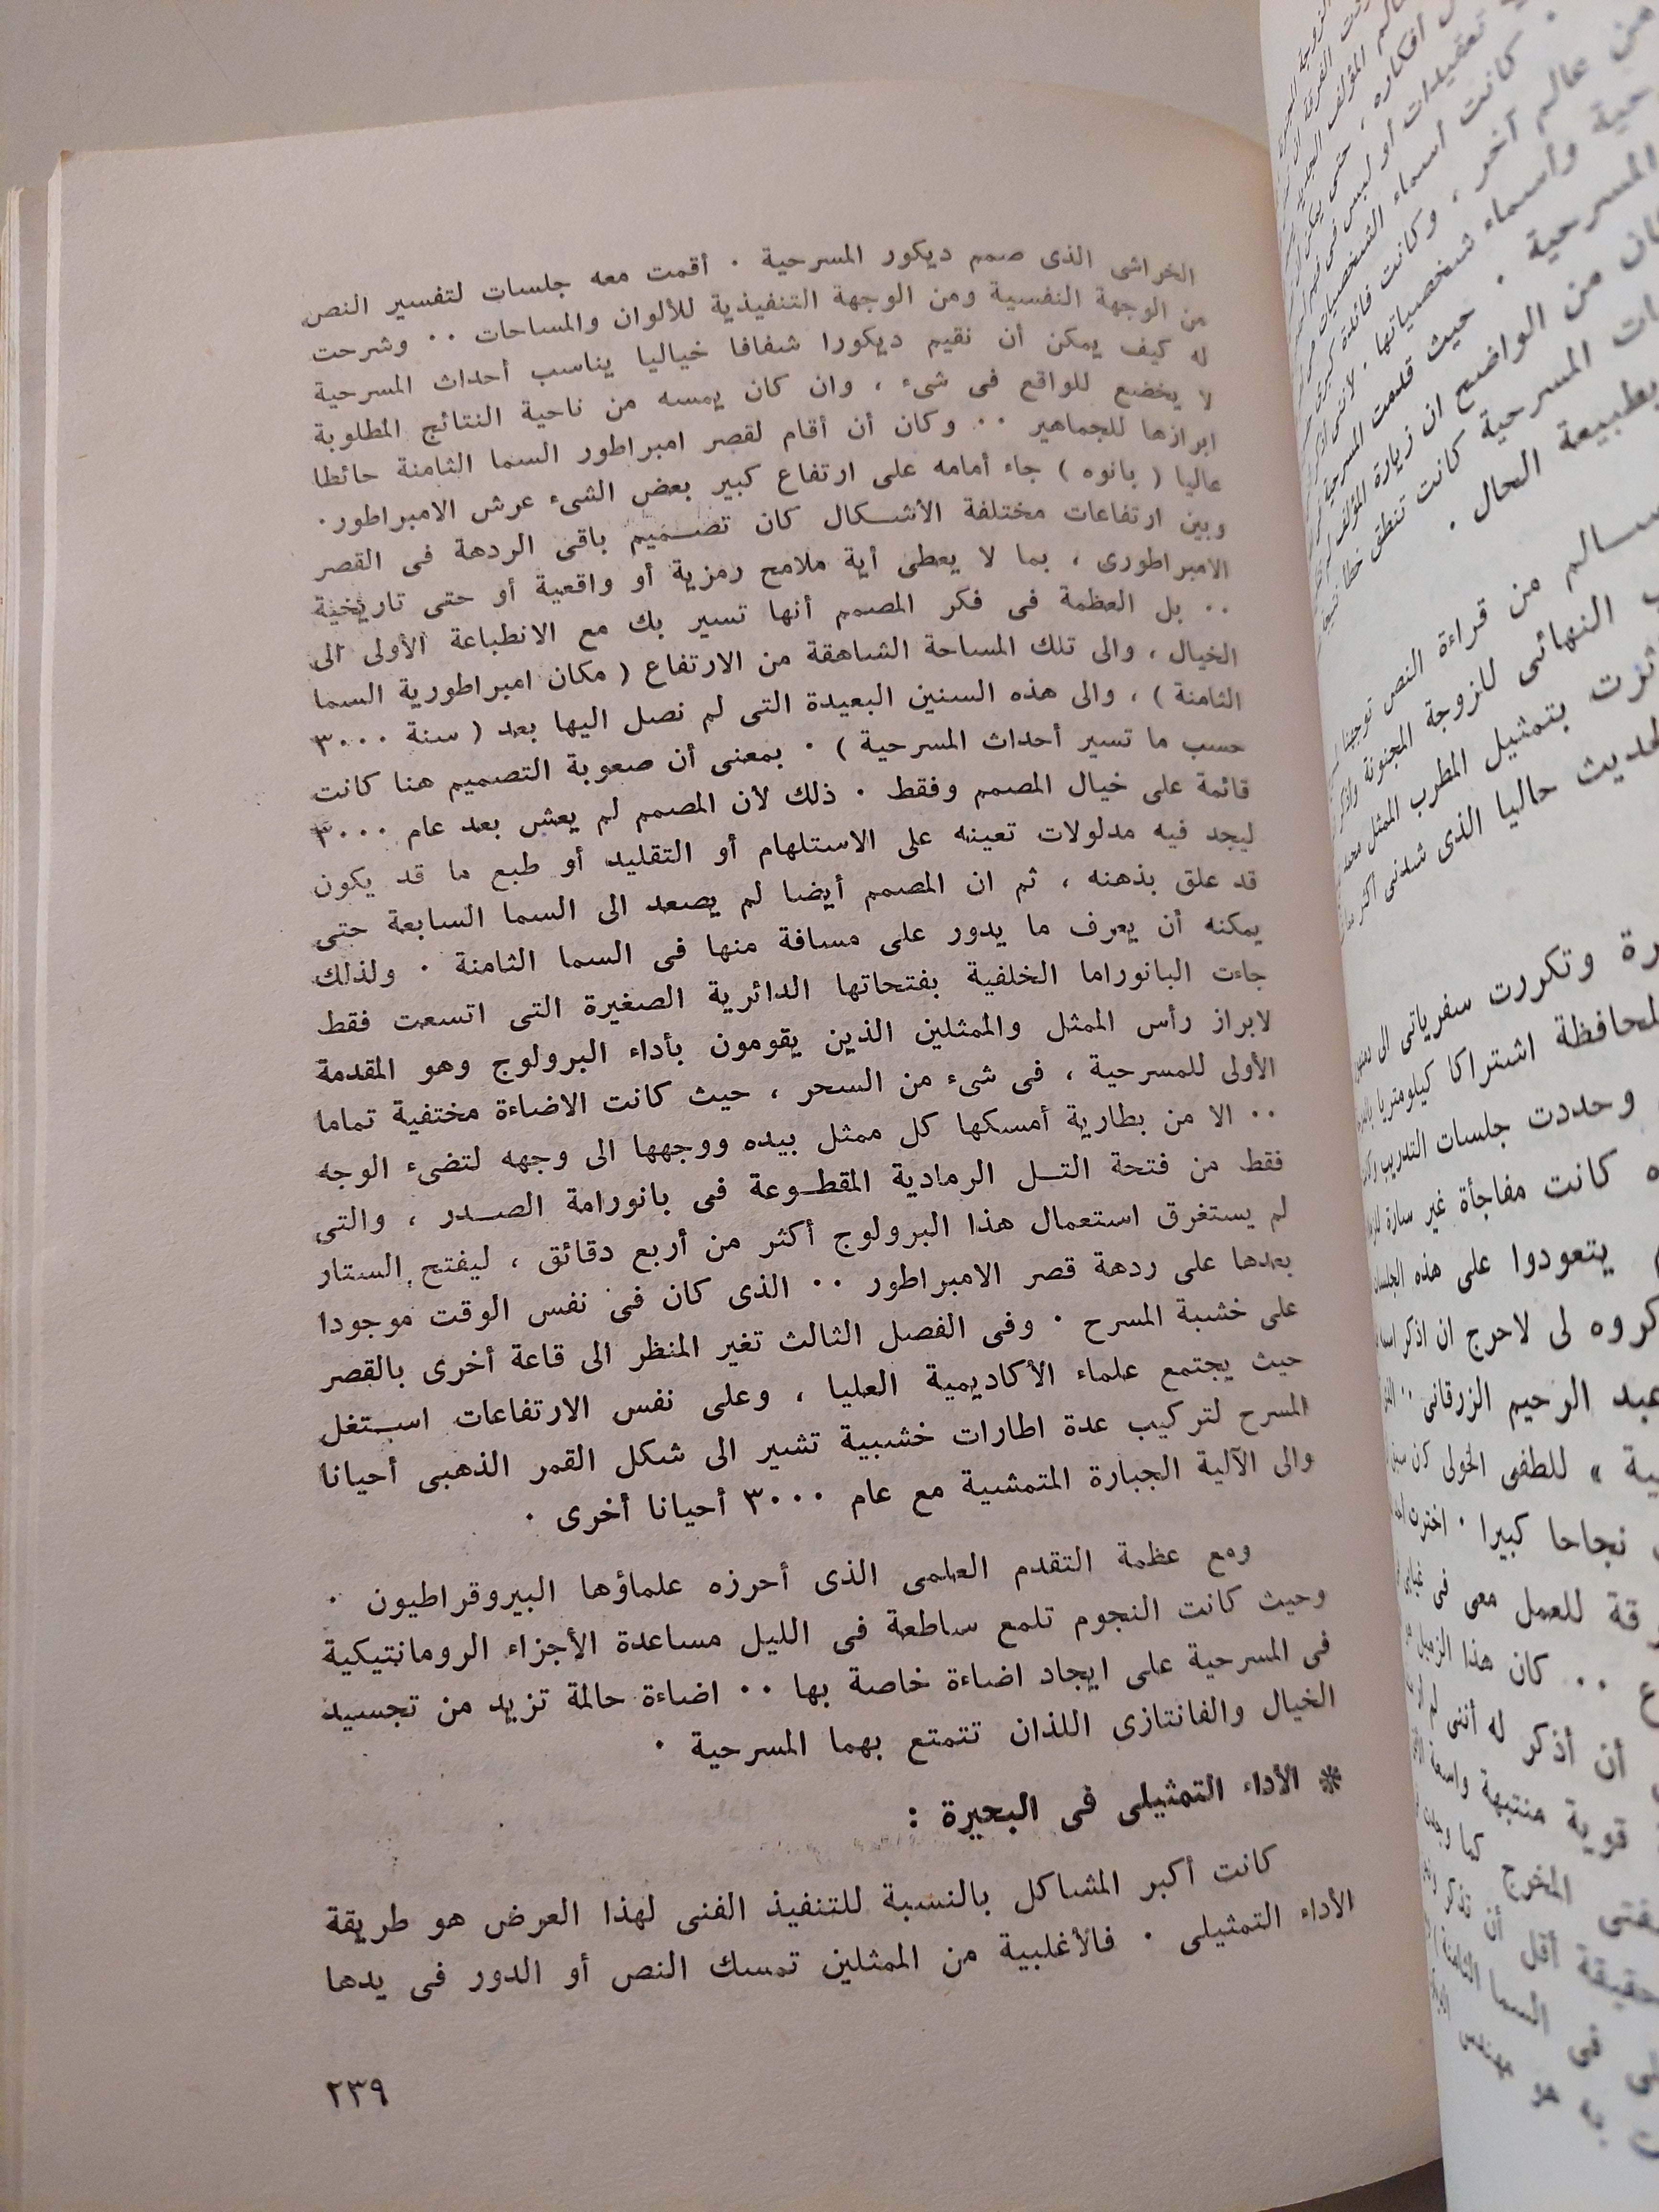 الخراشى الذى صمم ديكور المسرحية ٠ أقمت معه جلسات لتفسير النص
من الوجهة النفسية ومن الوجهة التنفيذية للألوان والمساحات ٠٠ وشرحت
له كيف يمكن أن نقيم ديكورا شفافا خياليا يناسب أحداث المسرحية
لا يخضع للواقع فى شىء ، وان كان يمسه من ناحية النتائج المطلوبة
ابرازها للجماهير ٠٠ وكان أن أقام لقصر امبراطور السما الثامنة حائطا
عاليا ( بانوه ) جاء أمامه على ارتفاع كبير بعض الشىء عرش الامبراطور٠
وبين ارتفاعات مختلفة الأشكال كان تصميم باقى الردهة فى القصر
الامبراطورى ، بما لا يعطى أية ملامح رمزية أو واقعية أو حتى تاريخية
٠٠ بل العظمة فى فكر المصمم أنها تسير بك مع الانطباعة الأولى الى
الخيال ، والى تلك المساحة الشاهقة من الارتفاع ( مكان امبراطورية السما
الثامنة ) ، والى هذه السنين البعيدة التى لم نصل اليها بعد ( سنة ٣٠٠٠
حسب ما تسير أحداث المسرحية ) ٠ بمعنى أن صعوبة التصميم هنا كانت
قائمة على خيال المصمم وفقط ٠ ذلك لأن المصمم لم يعش بعد عام ٣٠٠٠
ليجد فيه مدلولات تعينه على الاستلهام أو التقليد أو طبع ما قد يكون
قد علق بذهنه ، ثم ان المصمم أيضا لم يصعد الى السما السابعة حتى
يمكنه أن يعرف ما يدور على مسافة منها فى السما الثامنة ٠ ولذلك
جاءت البانوراما الخلفية بفتحاتها الدائرية الصغيرة التى اتسعت فقط
لابراز رأس الممثل والممثلين الذين يقومون بأداء البرولوج وهو المقدمة
الأولى للمسرحية ، فى شىء من السحر ، حيث كانت الاضاءة مختفية تماما
٠٠ الا من بطارية أمسكها كل ممثل بيده ووجهها الى وجهه لتضىء الوجه
فقط من فتحة التل الرمادية المقطوعة فى بانورامة الصدر ، والتى
لم يستغرق استعمال هذا البرولوج أكثر من أربع دقائق ، ليفتح الستار
بعدها على ردهة قصر الامبراطور ٠٠ الذى كان فى نفس الوقت موجودا
على خشبة المسرح ٠ وفى الفصل الثالث تغير المنظر الى قاعة أخرى بالقصر
حيث يجتمع علماء الأكاديمية العليا ، وعلى نفس الارتفاعات استغل
المسرح لتركيب عدة اطارات خشبية تشير الى شكل القمر الذهبى أحيانا
والى الآلية الجبارة المتمشية مع عام ٣٠٠٠ أحيانا أخرى ٠
ومع عظمة التقدم العلمى الذى أحرزه علماؤها البيروقراطيون ٠
وحيث كانت النجوم تلمع ساطعة فى الليل مساعدة الأجزاء الرومانتيكية
فى المسرحية على ايجاد اضاءة خاصة بها ٠٠ اضاءة حالمة تزيد من تجسيد
الخيال والفانتازى اللذان تتمتع بهما المسرحية ٠
* الأداء التمثيلى فى البحيرة :
كانت أكبر المشاكل بالنسبة للتنفيذ الفنى لهذا العرض هو طريقة
الأداء التمثيلى ٠ فالأغلبية من الممثلين تمسك النص أو الدور فى يدها
٢٣٩
من عالم آخر ، وكانت فائدة
المسرحية ٠ حيث قدمت المسرحية
من الواضح ان زيارة المؤلف
المسرحية كانت تنطق
بطبيعة الحال ٠
من قراءة النص توجهنا
النهائى للزوجة المجنونة
بتمثيل المطرب الممثل
حاليا الذى شدنى أكثر
وتكررت سفرياتى الى
اشتراكا كيلومتريا
وحددت جلسات التدريب
كانت مفاجأة غير سارة
يتعودوا على هذه
لى لاحرج ان اذكر
الرحيم الزرقانى ٠٠
للطفى الخولى
نجاحا كبيرا ٠ اخترت
للعمل معى فى
٠٠ كان هذا الزميل
أن أذكر له أننى لم
قوية منتبهة واسعة
المخرج كما
أقل أن
فى السما الثامنة